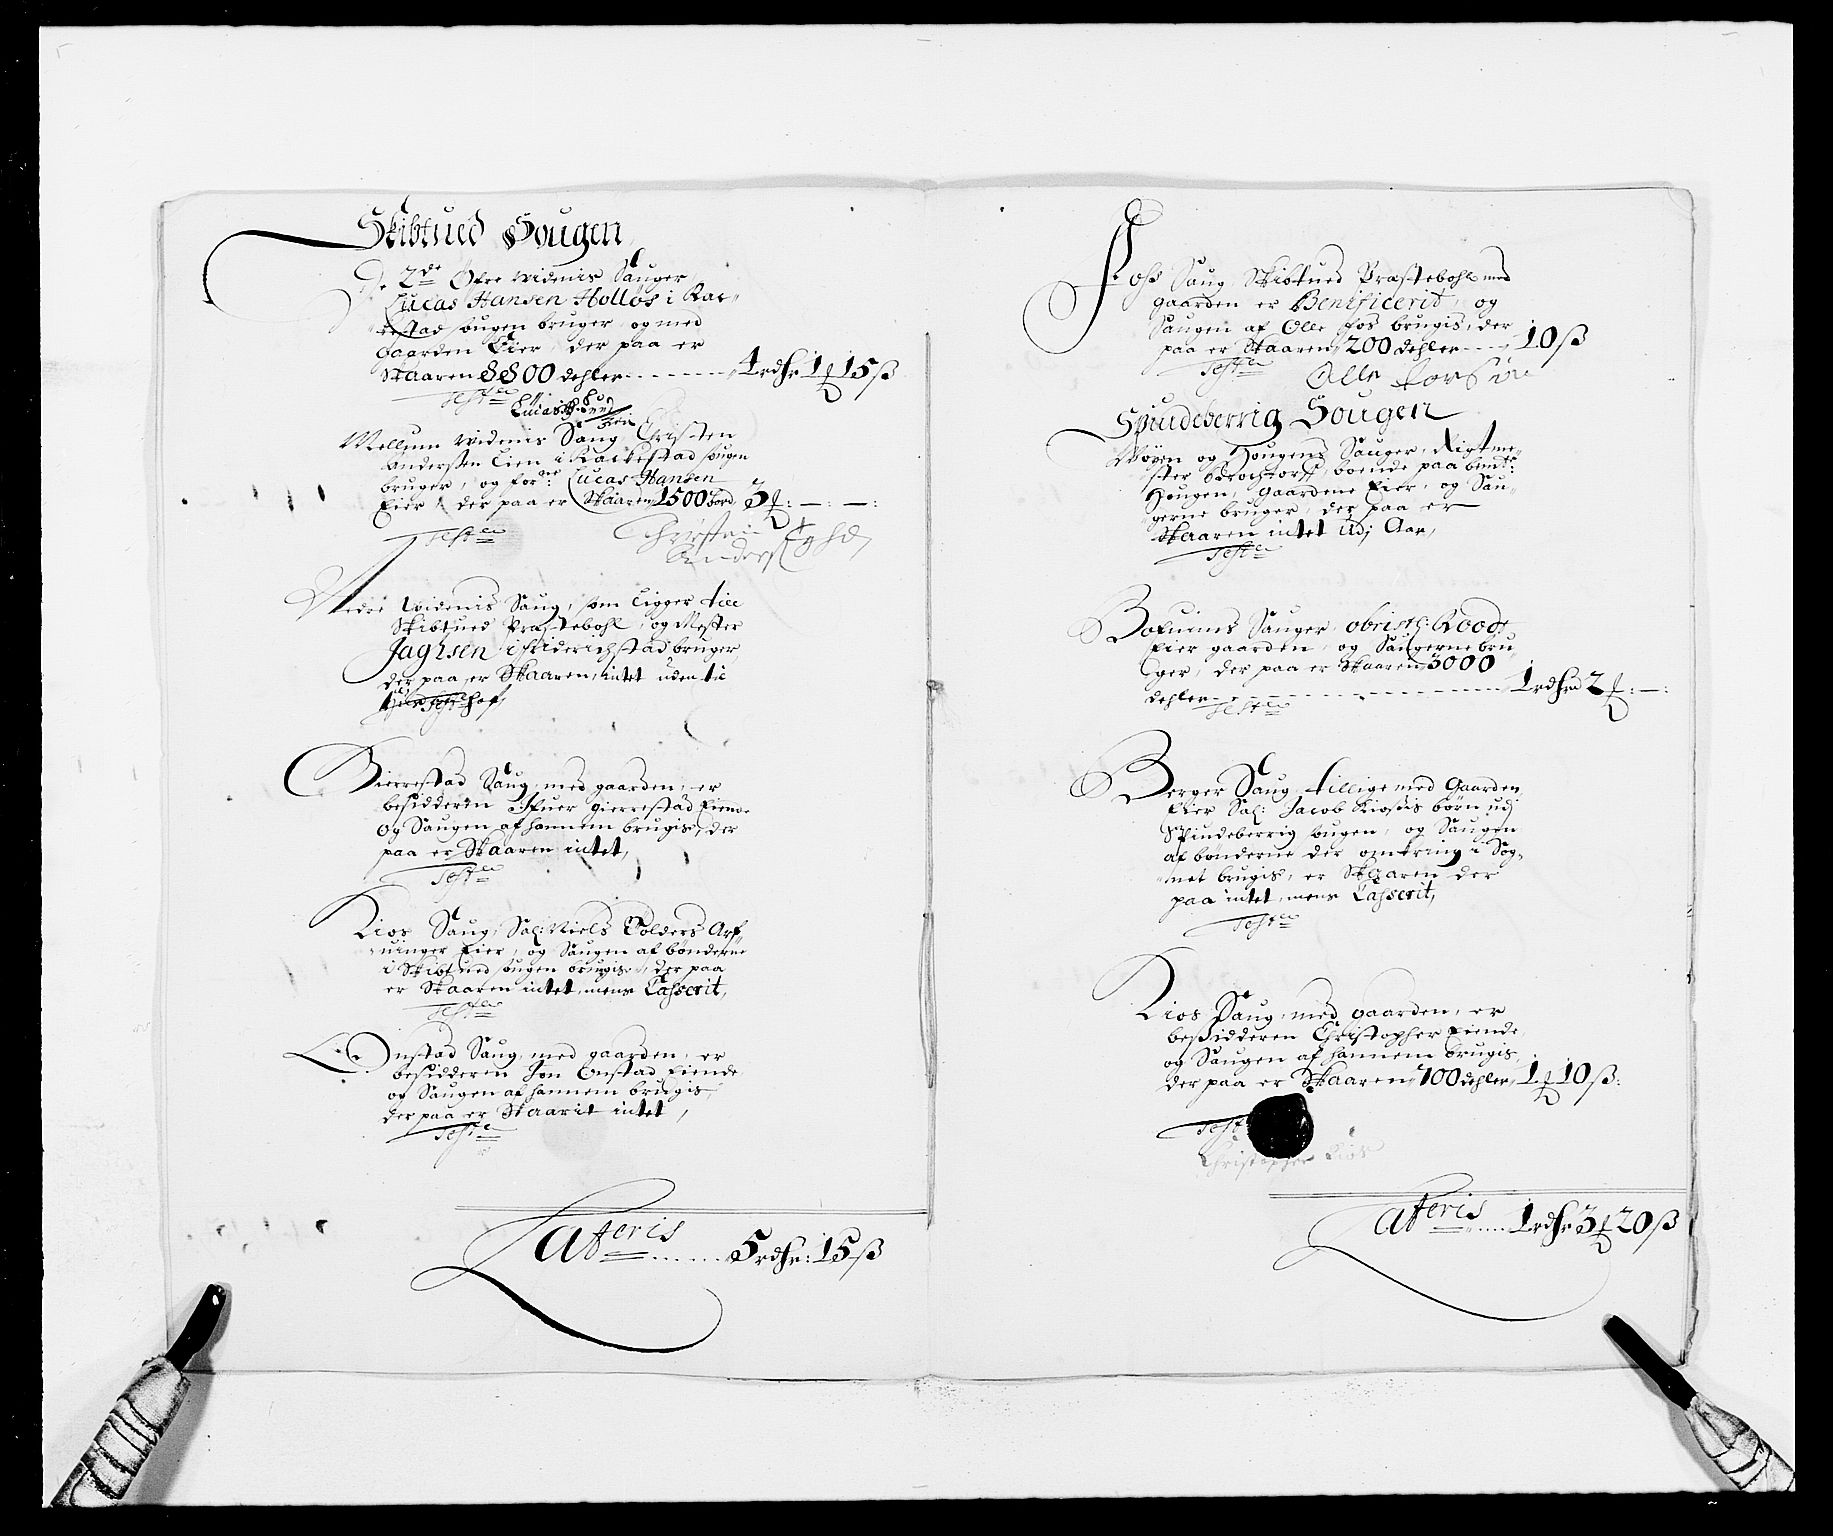 Skibtued Sougen
De 2de Øfre Widenis Sauger
Lucas Hansen Holløs i Rac-
kestad sougen bruger, og med
Gaarden Eier, der paa er
Skaaren 8800 dehler ------ 4 rdhr 1 ʒ 15 ß
Teste
Mellum Widenis Saug, Christen
Andersen Lien i Rackestad sougen
bruger, og for.ne Lucas Hansen
Eier, der paa er Skaaren 1500 bord 3 ʒ: — : — :
Teste
Nedre Widenis Saug, som Ligger till
Skibtued Præstebohl, og Mester
Jagisen i Friderichstad bruger,
der paa er Skaaren, intet uden til
Teste
Gierrestad Saug, med gaarden, er
besidderen Ifuer Gierrestad Eiende
og Saugen af hannem brugis, der
paa er Skaaren intet,
Teste
Kios Saug, Sal: Niels Tolders Arf-
uinger Eier, og Saugen af bønderne
i Skibtued sougen brugis, der paa
er Skaaren intet, mens Casserit,
Teste
Onstad Saug, med gaarden, er
besidderen Jon Onstad Eiende
og Saugen af hannem brugis,
der paa er Skaarit intet,
Teste
Lateris ------ 5 rdhr: 15 ß
Foss Saug, Skibtued Præstebohl med
gaarden er Benificerit, og
Saugen af Olle Fos brugis, der
paa er Skaaren 200 dehler ---- 10 ß
Teste
Olle
Spindeberrig Sougen
og Hougens Sauger, Rigtme-
ster Brochtorff, boende paa bemte:
Hougen, Gaardene Eier, og Sau-
gerne bruger, der paa er
Skaaren intet udj Aar,
Teste
Sauger, obristl: Roode
Eier gaarden, og Saugerne bru-
ger, der paa er Skaaren 3000
dehler ------ 1 rdhr 2 ʒ: — :
Teste
Berger Saug, tillige med Gaarden
Eier Sal: Jacob Kiosiis børn udj
Spindeberrig sougen, og Saugen
af bønderne der omkring i Sog-
net brugis, er Skaaren der
paa intet, mens Casserit,
Teste
Kios Saug, med gaarden, er
besidderen Christopher Eiende,
og Saugen af hannem brugis,
der paa er Skaaren 700 dehler, 1 ʒ 10 ß:
Teste
Christopher Kios
Lateris ---- 1 rdhr 3 ʒ 20 ß